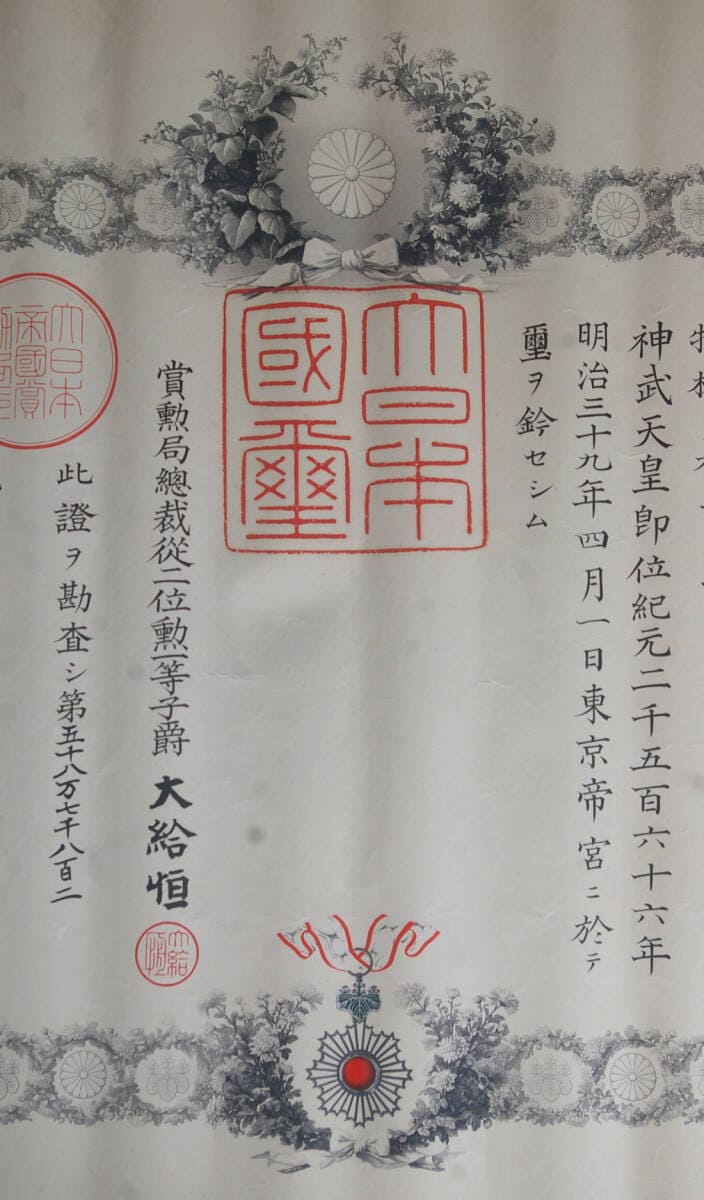 神武天皇卽位紀元二千五百六十六年
明治三十九年四月一日東京帝宮ニ於テ
璽ヲ鈐セシム
大日本
國璽
賞勲局總裁從二位勲一等子爵大給恒
大給
此證ヲ勘査シ第五十八万七千八百二
大日本
帝國賞